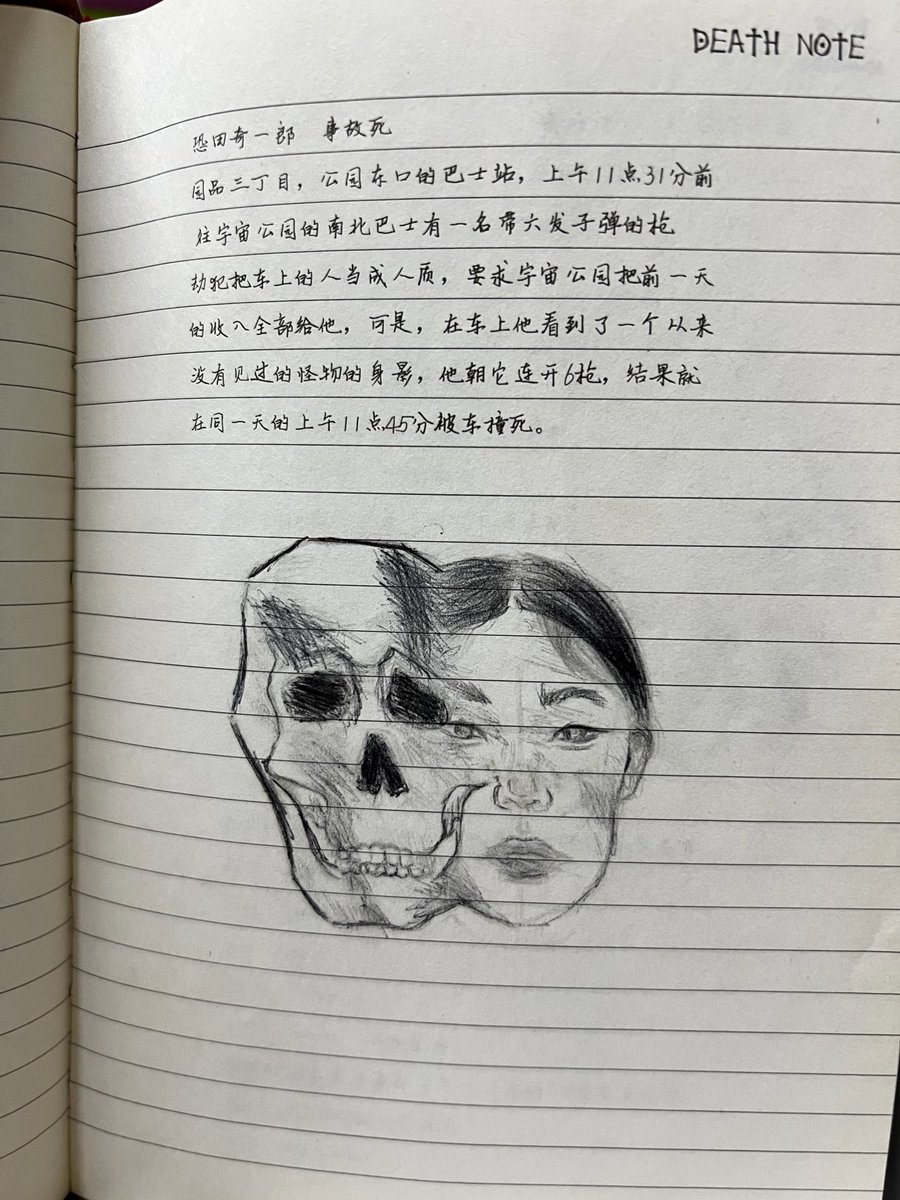 DEATH NOTE
恐田奇一郎 事故死
园品三丁目，公园东口的巴士站，上午11点31分前
往宇宙公园的南北巴士有一名带六发子弹的枪
劫犯把车上的人当成人质，要求宇宙公园把前一天
的收入全部给他，可是，在车上他看到了一个从来
没有见过的怪物的身影，他朝它连开6枪，结果就
在同一天的上午11点45分被车撞死。